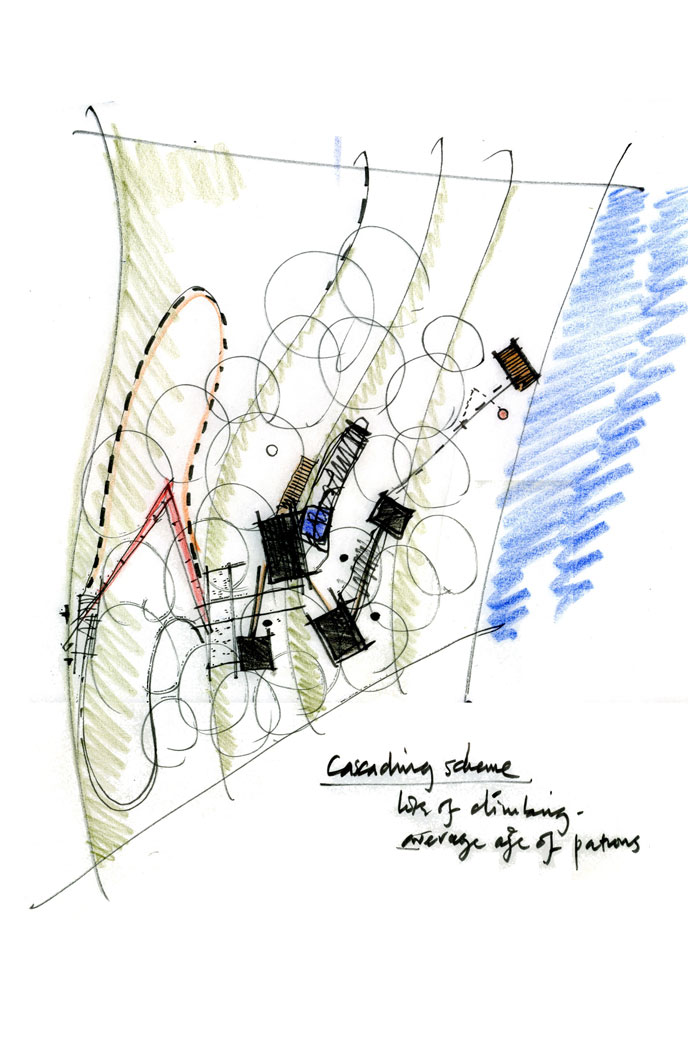 Cascading scheme
lots of climbing -
average age of patrons